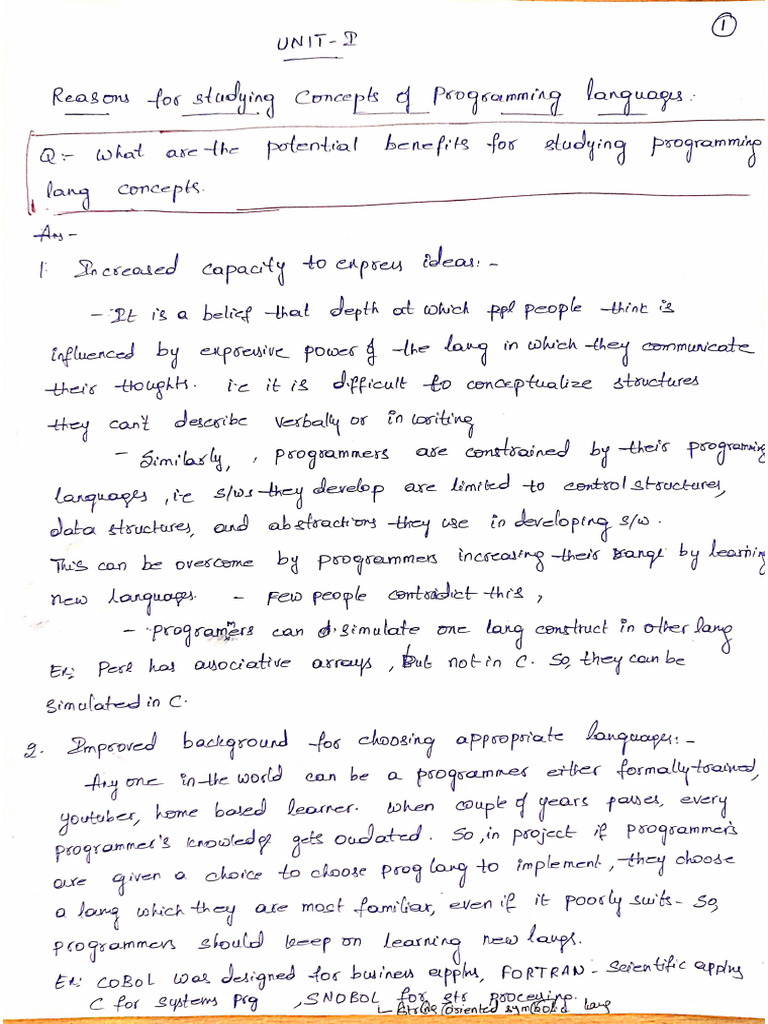 1
UNIT-I
Reasons for studying Concepts of Programming languages:
Q:- What are the potential benefits for studying programming
lang concepts.
Ans -
1. Increased capacity to express ideas:-
- It is a belief that depth at which ppl people think is
influenced by expressive power of the lang in which they communicate
their thoughts. i.e it is difficult to conceptualize structures
they can't describe verbally or in writing
- Similarly, , programmers are constrained by their programming
languages, i.e s/ws they develop are limited to control structures,
data structures, and abstractions they use in developing s/w.
This can be overcome by programmers increasing their range by learning
new languages. - Few people contradict this,
- programmers can simulate one lang construct in other lang
Ex: Perl has associative arrays, but not in C. So, they can be
simulated in C.
2. Improved background for choosing appropriate languages:-
Any one in the world can be a programmer either formally trained,
youtuber, home based learner. When couple of years passes, every
programmer's knowledge gets oudated. So, in project if programmer's
are given a choice to choose prog lang to implement, they choose
a lang which they are most familiar, even if it poorly suits. So,
programmers should keep on learning new langs.
Ex: COBOL was designed for business applns, FORTRAN - Scientific applns
C for systems Prg , SNOBOL for str processing.
String Oriented symbolic lang